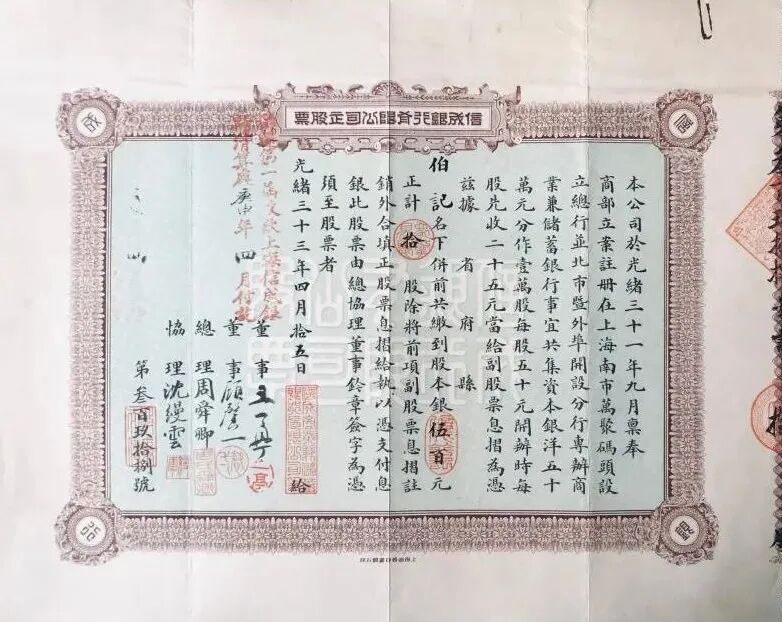 信成銀行有限公司正股票
信
成
銀
行
本公司於光緒三十一年九月稟奉
商部立案註冊在上海南市萬聚碼頭設
立總行並北市暨外埠開設分行專辦商
業兼儲蓄銀行事宜共集資本銀洋五十
萬元分作壹萬股每股五十元開辦時每
股先收二十五元當給副股票息摺為憑
茲據 省 府 縣
伯記名下併前共繳到股本銀伍百元
正計拾股除將前項副股票息摺註
銷外合填正股票息摺給執以憑支付息
銀此股票由總協理董事鈐章簽字為憑
須至股票者
光緒三十三年四月拾五日 給
庚申年四月付訖
董事王一亭
董事顧馨一
總理周舜卿
協理沈縵雲
第叁百玖拾捌號